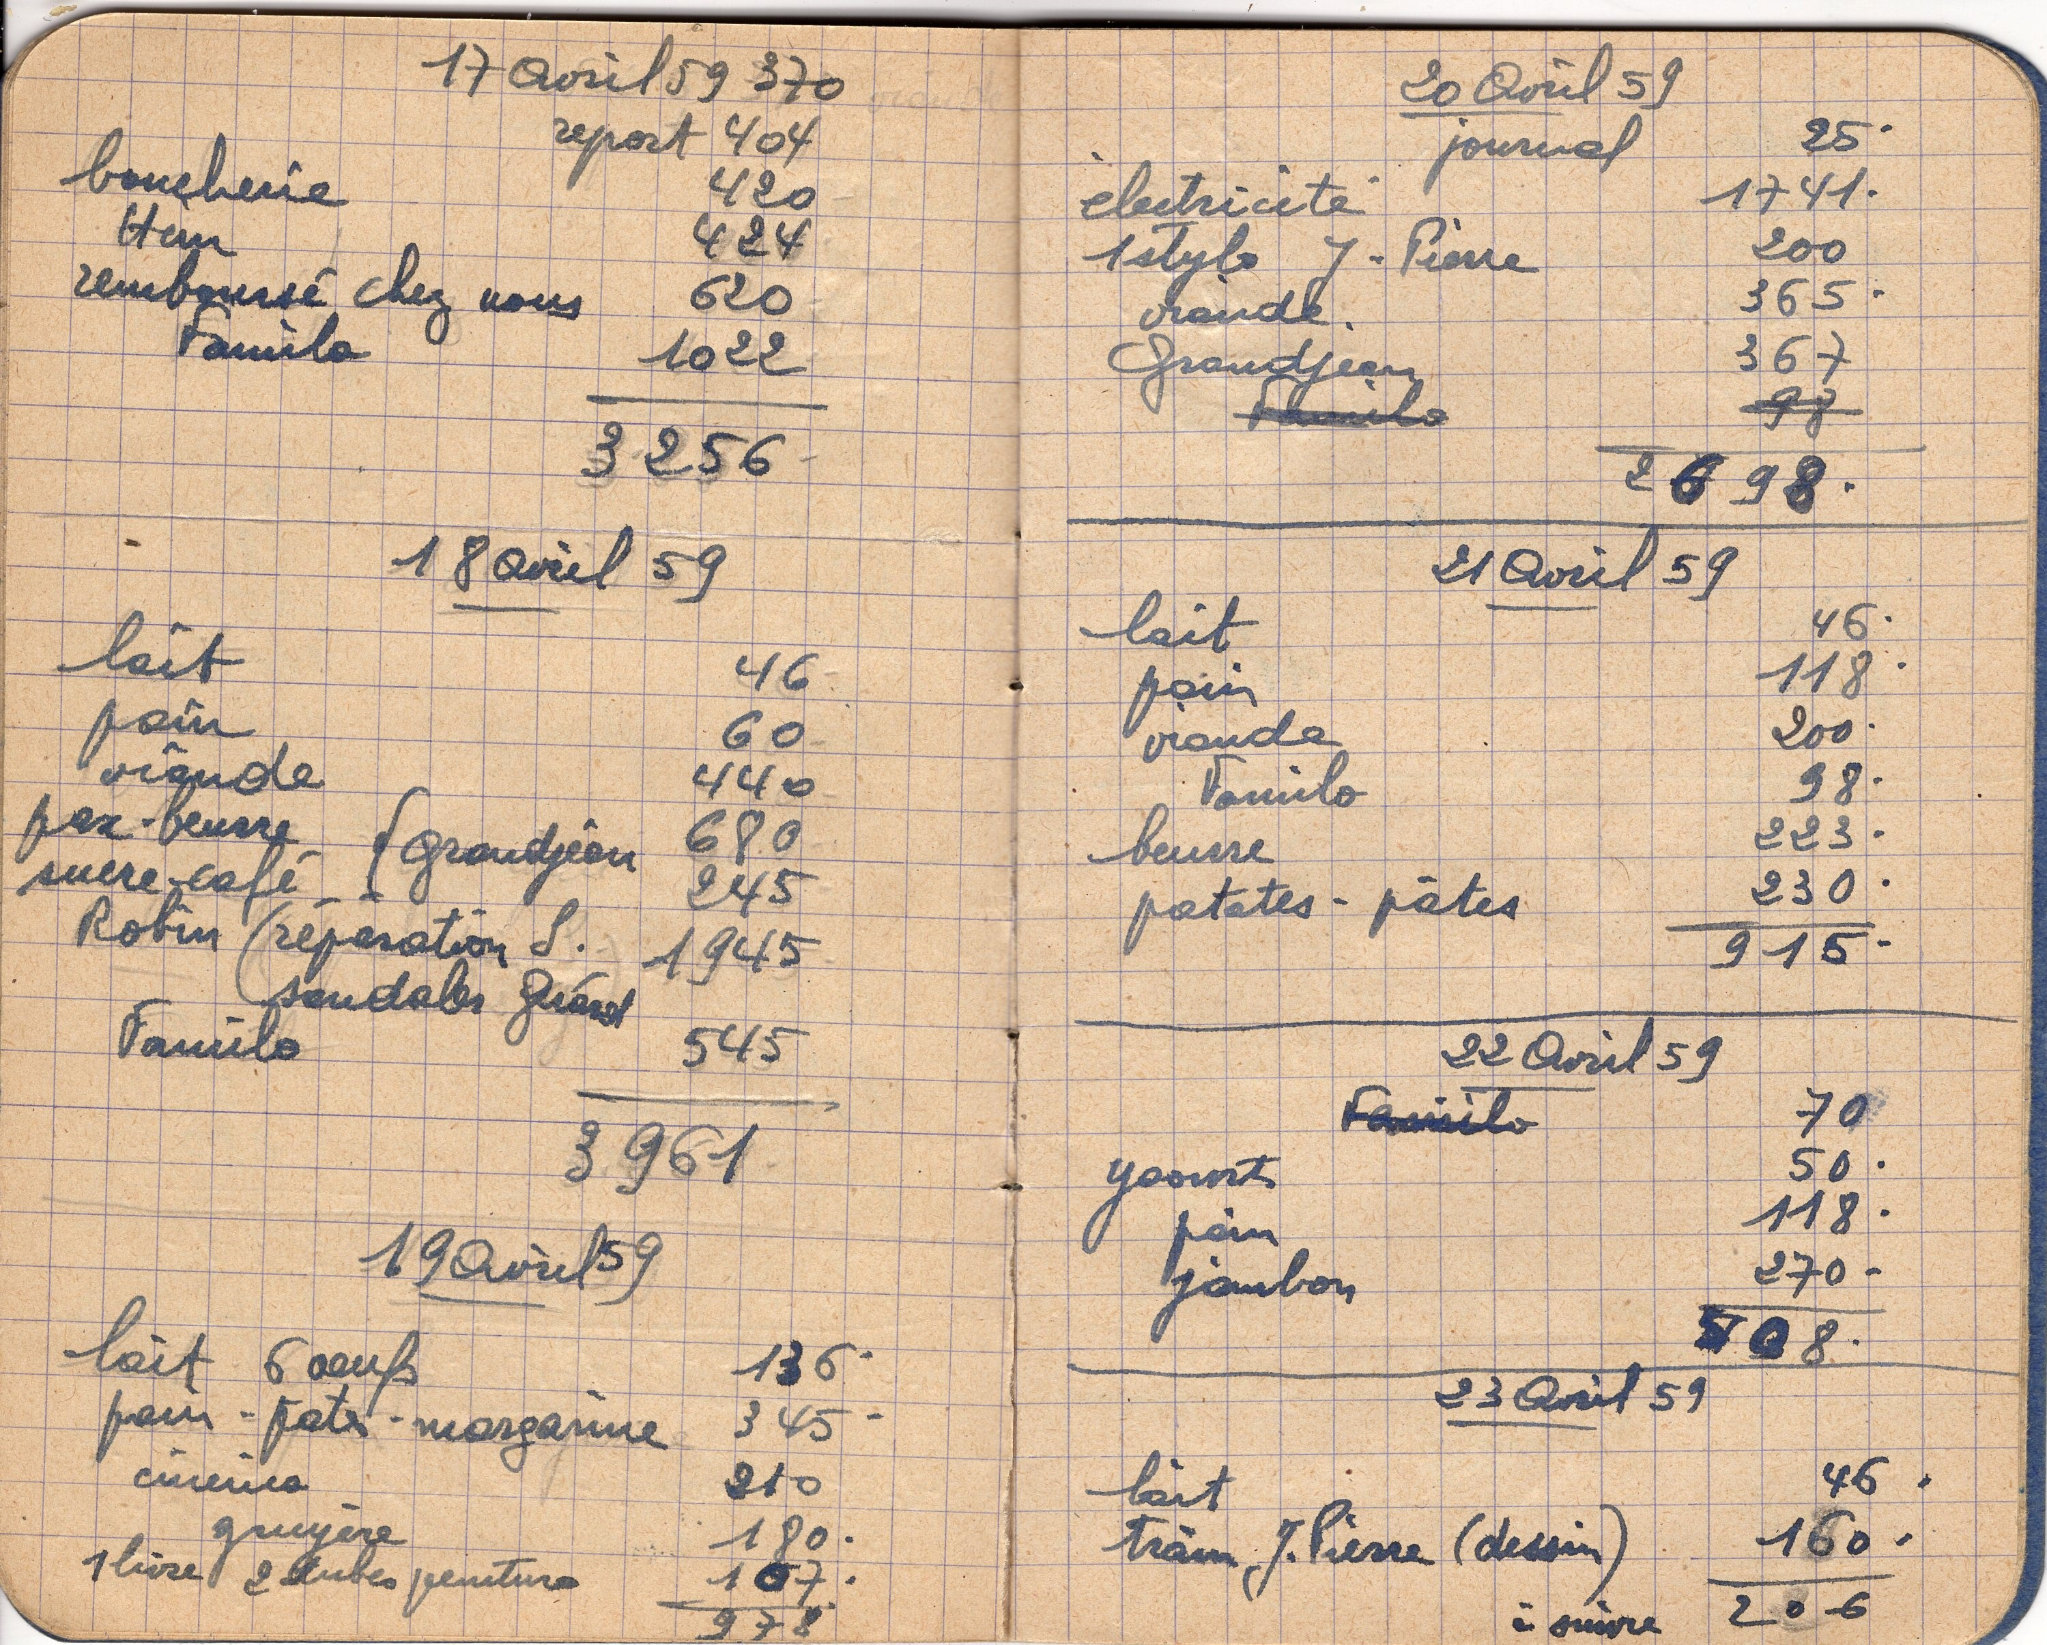 17 Avril 59 370
report 404
boucherie 420
424
remboursé chez nous 620
Familo 1022
3256
18 Avril 59
lait 46
pain 60
viande 440
pax-beurre { Grandjean 680
sucre-café 245
Robin (réparation S. 1945
sandales Gérard
Familo 545
3961
19 Avril 59
lait 6 oeufs 136
pain - pates - margarine 345
cinéma 210
gruyère 180
1 livre 2 tubes peinture 107
978
20 Avril 59
journal 25
électricité 1741
1 stylo J-Pierre 200
viande 365
Grandjean 367
Familo 98
2698
21 Avril 59
lait 46
pain 118
viande 200
Familo 98
beurre 223
patates - pâtes 230
915
22 Avril 59
Familo 70
yaourts 50
pain 118
jambon 270
508
23 Avril 59
lait 46
tram J. Pierre (dessin) 160
à suivre 206